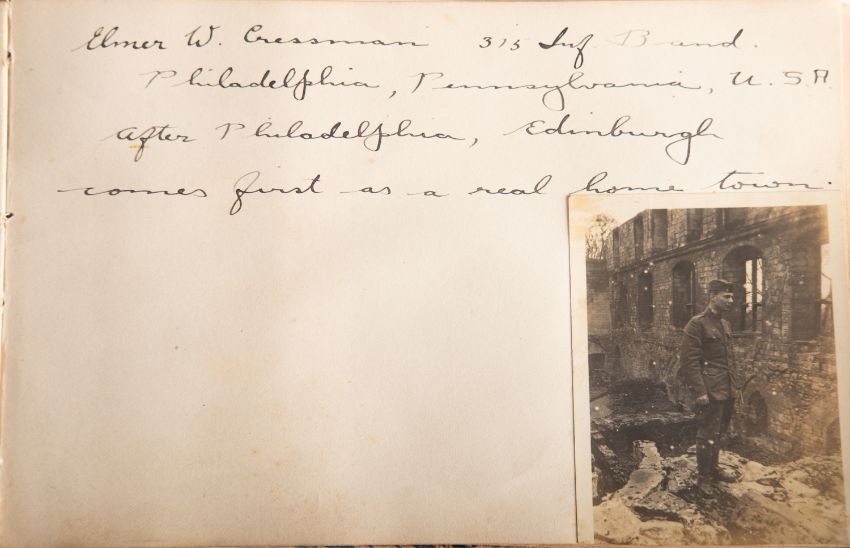 Elmer W. Cressman 315 Inf. Band.
Philadelphia, Pennsylvania, U.S.A.
After Philadelphia, Edinburgh
comes first as a real home town.